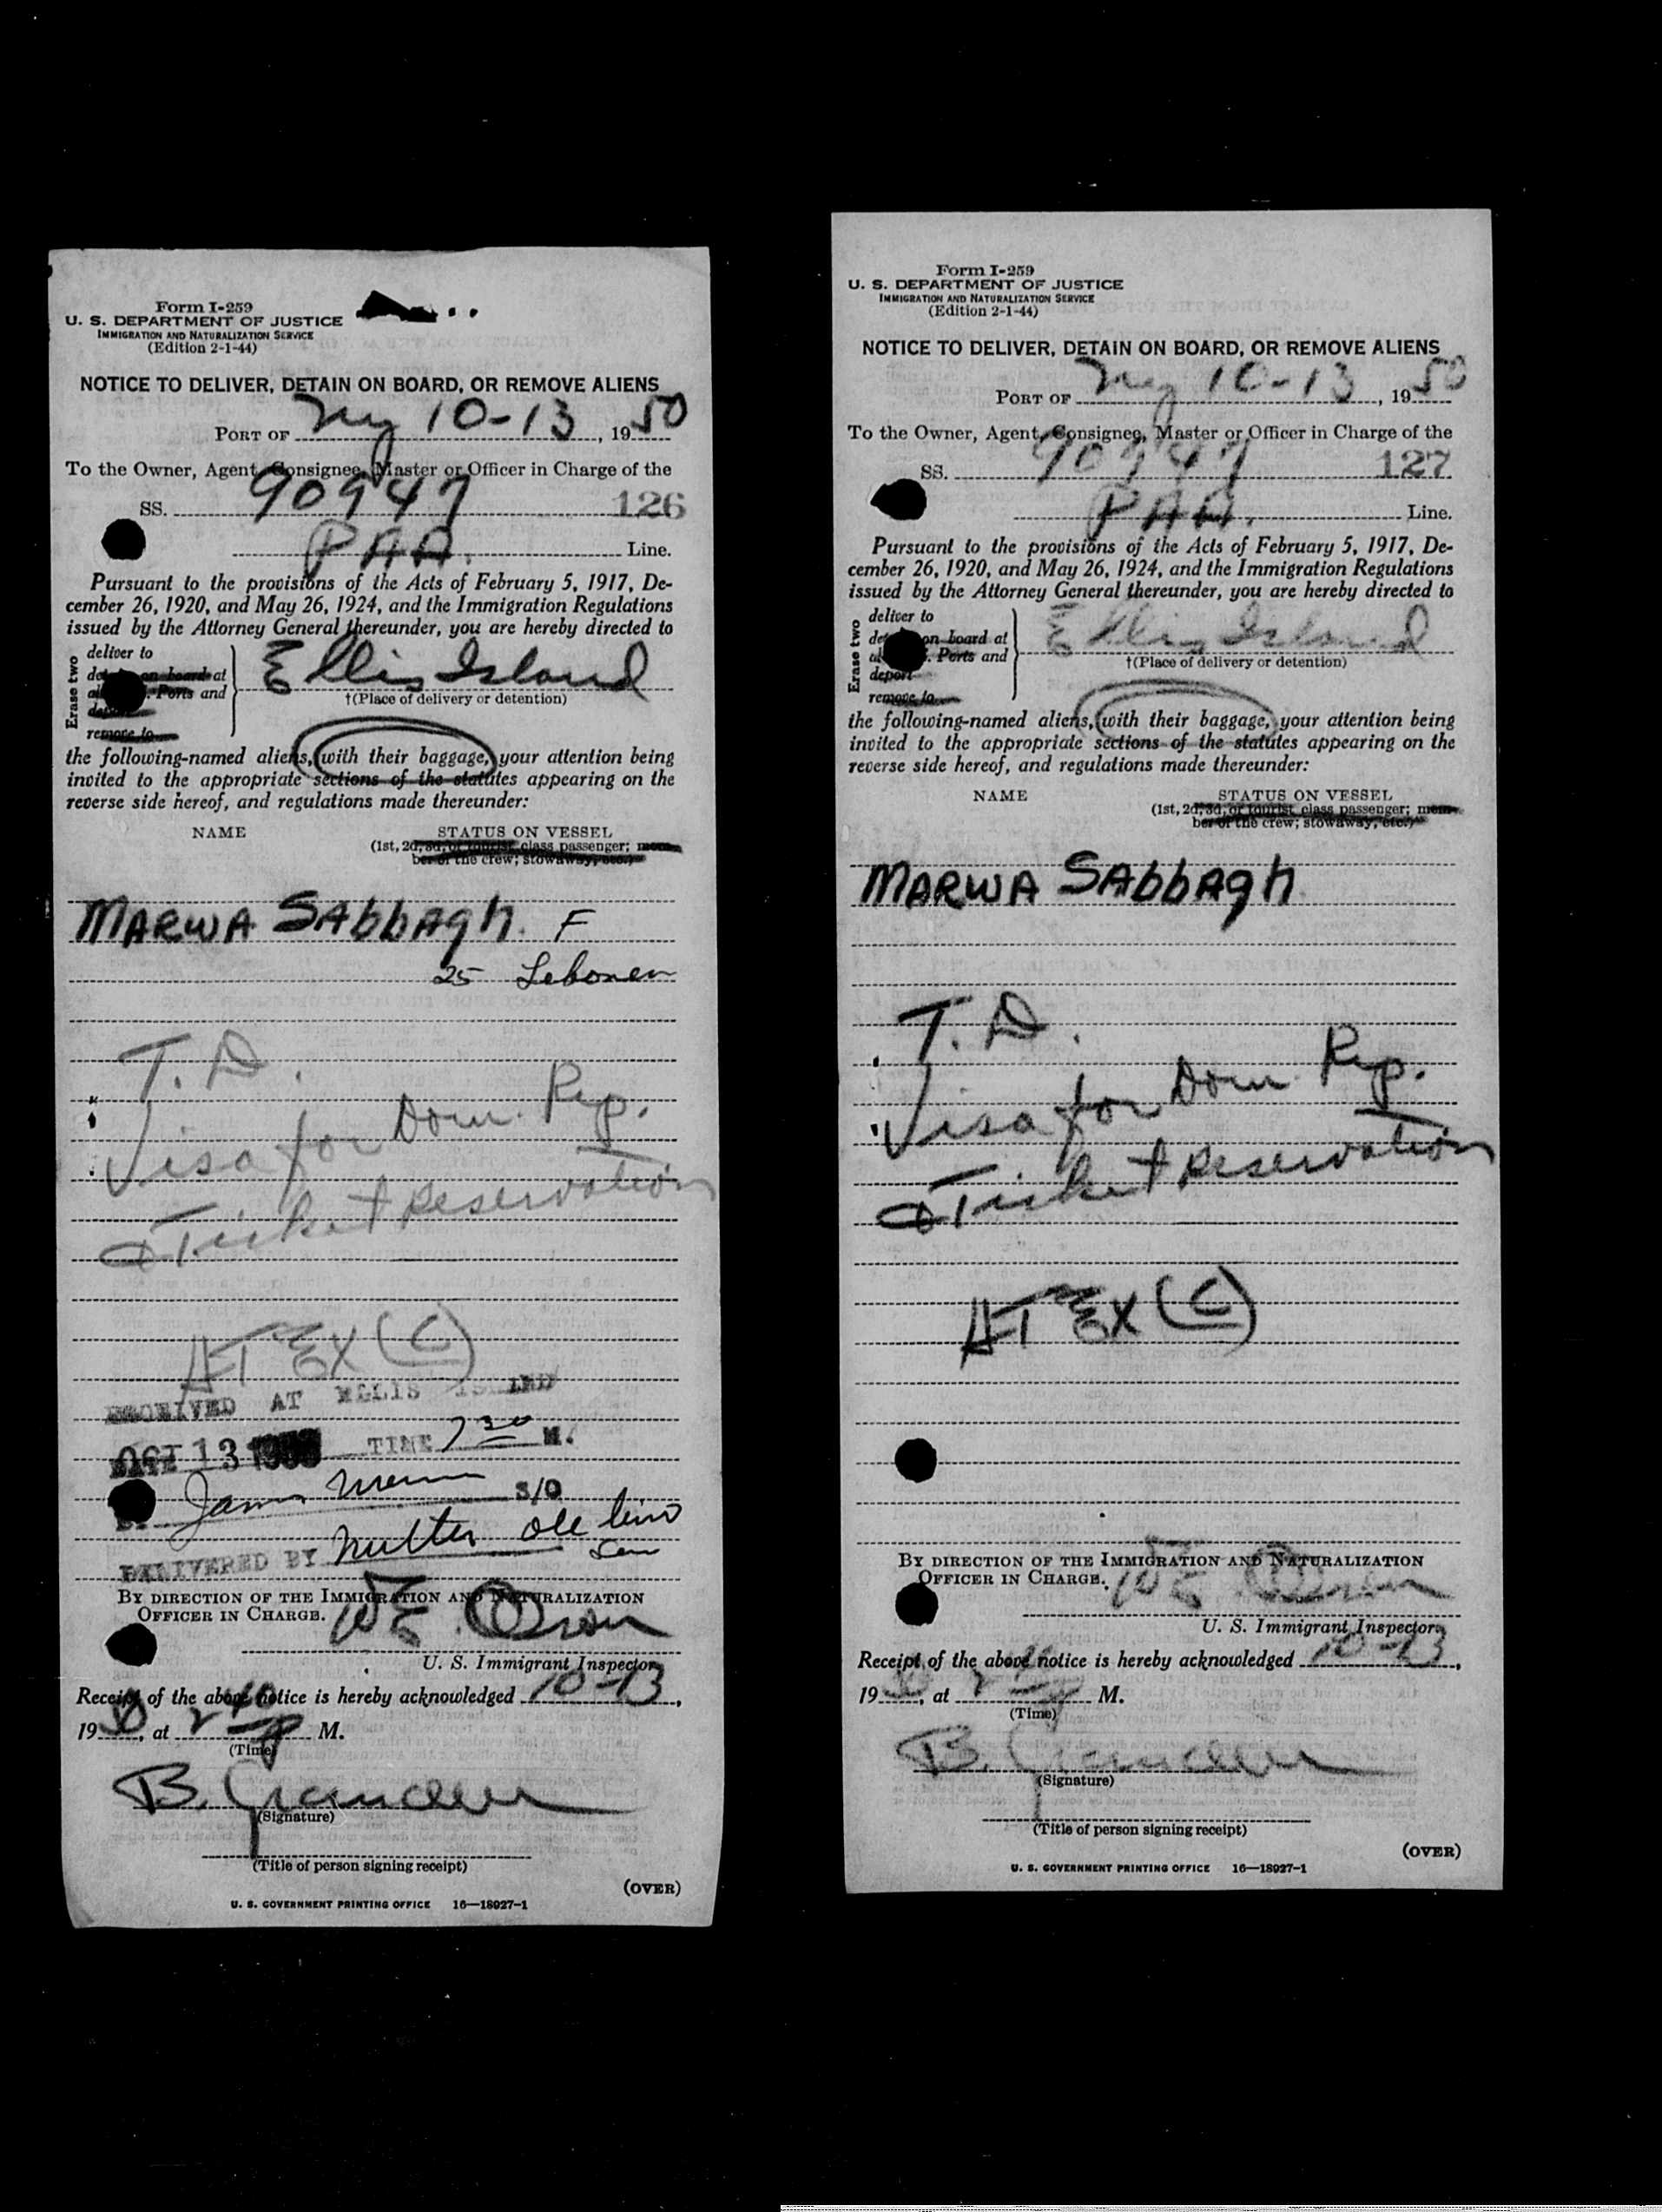 Form I-259
U. S. DEPARTMENT OF JUSTICE
IMMIGRATION AND NATURALIZATION SERVICE
(Edition 2-1-44)
NOTICE TO DELIVER, DETAIN ON BOARD, OR REMOVE ALIENS
PORT OF NY 10-13, 1950
To the Owner, Agent, Consignee, Master or Officer in Charge of the
SS. 90947 126
PAA. Line.
Pursuant to the provisions of the Acts of February 5, 1917, De-
cember 26, 1920, and May 26, 1924, and the Immigration Regulations
issued by the Attorney General thereunder, you are hereby directed to
Erase two
deliver to
on board at
Ports and
remove to
Ellis Island
†(Place of delivery or detention)
the following-named aliens, with their baggage, your attention being
invited to the appropriate sections of the statutes appearing on the
reverse side hereof, and regulations made thereunder:
NAME STATUS ON VESSEL
(1st, 2d, 3d, or tourist class passenger; mem-
ber of the crew; stowaway, etc.)
MARWA SAbbAgh. F
25 Lebonen
T. D.
Visa for Dom. Rep.
& Ticket Reservation
AT EX (C)
RECEIVED AT ELLIS ISLAND
DATE OCT 13 TIME 7 30 M.
S/O
DELIVERED BY
BY DIRECTION OF THE IMMIGRATION AND NATURALIZATION
OFFICER IN CHARGE.
U. S. Immigrant Inspector.
Receipt of the above notice is hereby acknowledged 10-13,
1950, at M.
(Time)
B.
(Signature)
(Title of person signing receipt)
(OVER)
U. S. GOVERNMENT PRINTING OFFICE 16—18927-1
Form I-259
U. S. DEPARTMENT OF JUSTICE
IMMIGRATION AND NATURALIZATION SERVICE
(Edition 2-1-44)
NOTICE TO DELIVER, DETAIN ON BOARD, OR REMOVE ALIENS
PORT OF NY 10-13, 1950
To the Owner, Agent, Consignee, Master or Officer in Charge of the
SS. 90947 127
PAA. Line.
Pursuant to the provisions of the Acts of February 5, 1917, De-
cember 26, 1920, and May 26, 1924, and the Immigration Regulations
issued by the Attorney General thereunder, you are hereby directed to
Erase two
deliver to
on board at
Ports and
deport
remove to
Ellis Island
†(Place of delivery or detention)
the following-named aliens, with their baggage, your attention being
invited to the appropriate sections of the statutes appearing on the
reverse side hereof, and regulations made thereunder:
NAME STATUS ON VESSEL
(1st, 2d, 3d, or tourist class passenger; mem-
ber of the crew; stowaway, etc.)
MARWA SAbbAgh
T. D.
Visa for Dom. Rep.
& Ticket Reservation
AT EX (C)
BY DIRECTION OF THE IMMIGRATION AND NATURALIZATION
OFFICER IN CHARGE.
U. S. Immigrant Inspector.
Receipt of the above notice is hereby acknowledged 10-13,
1950, at M.
(Time)
B.
(Signature)
(Title of person signing receipt)
(OVER)
U. S. GOVERNMENT PRINTING OFFICE 16—18927-1